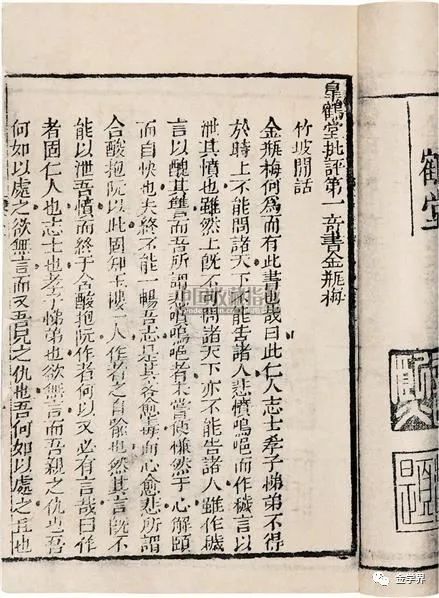 皐鶴堂批評第一奇書金瓶梅
竹坡閒話
金瓶梅何為而有此書也哉曰此仁人志士孝子悌弟不得
於時上不能問諸天下不能告諸人悲憤嗚唈而作穢言以
泄其憤也雖然上既不可問諸天下亦不能告諸人雖作穢
言以醜其讐而吾所謂悲憤嗚唈者未嘗便慊然于心解頤
而自快也夫終不能一暢吾志是其言愈毒而心愈悲所謂
含酸抱阮以此固知玉樓一人作者之自喻也然其言既不
能以泄吾憤而終于含酸抱阮作者何以又必有言哉曰作
者固仁人也志士也孝子悌弟也欲無言而吾親之仇也吾
何如以處之欲無言而又吾兄之仇也吾何如以處之且也
鶴堂
金学界